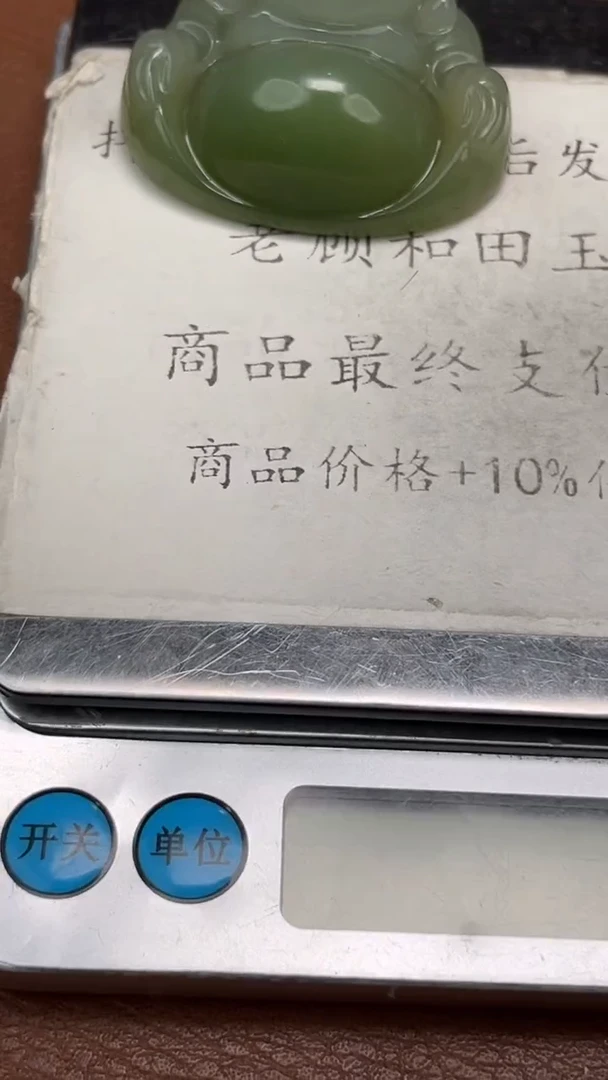 后发
老顾和田玉
商品最终支付
商品价格+10%
开关
单位